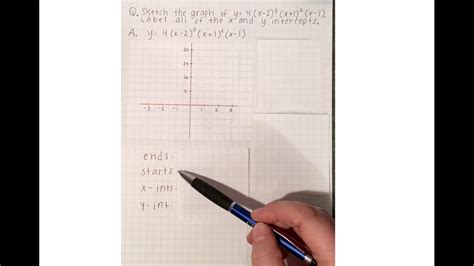 Q. Sketch the graph of y= 4(x-2)³(x+1)²(x-1).
Label all of the x and y intercepts.
A. y= 4(x-2)³(x+1)²(x-1)
32
24
16
8
-3 -2 -1 1 2 3
ends:
starts:
x-ints:
y-int: